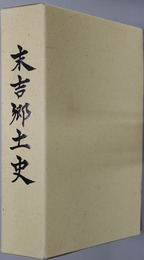 末吉郷土史